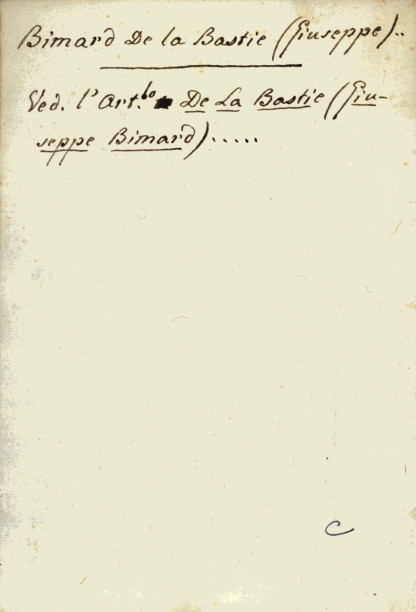 Bimard De la Bastie (Giuseppe)..
Ved. l'Art.lo De La Bastie (Giu-
seppe Bimard).....
C